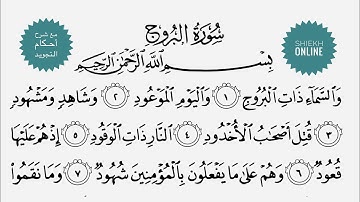 سُورَةُ البُرُوجِ
مع شرح
أحكام
التجويد
SHIEKH
ONLINE
بِسْمِ اللَّهِ الرَّحْمَٰنِ الرَّحِيمِ
وَٱلسَّمَآءِ ذَاتِ ٱلْبُرُوجِ ١ وَٱلْيَوْمِ ٱلْمَوْعُودِ ٢ وَشَاهِدٍ وَمَشْهُودٍ
٣ قُتِلَ أَصْحَٰبُ ٱلْأُخْدُودِ ٤ ٱلنَّارِ ذَاتِ ٱلْوَقُودِ ٥ إِذْ هُمْ عَلَيْهَا
قُعُودٌ ٦ وَهُمْ عَلَىٰ مَا يَفْعَلُونَ بِٱلْمُؤْمِنِينَ شُهُودٌ ٧ وَمَا نَقَمُوا۟